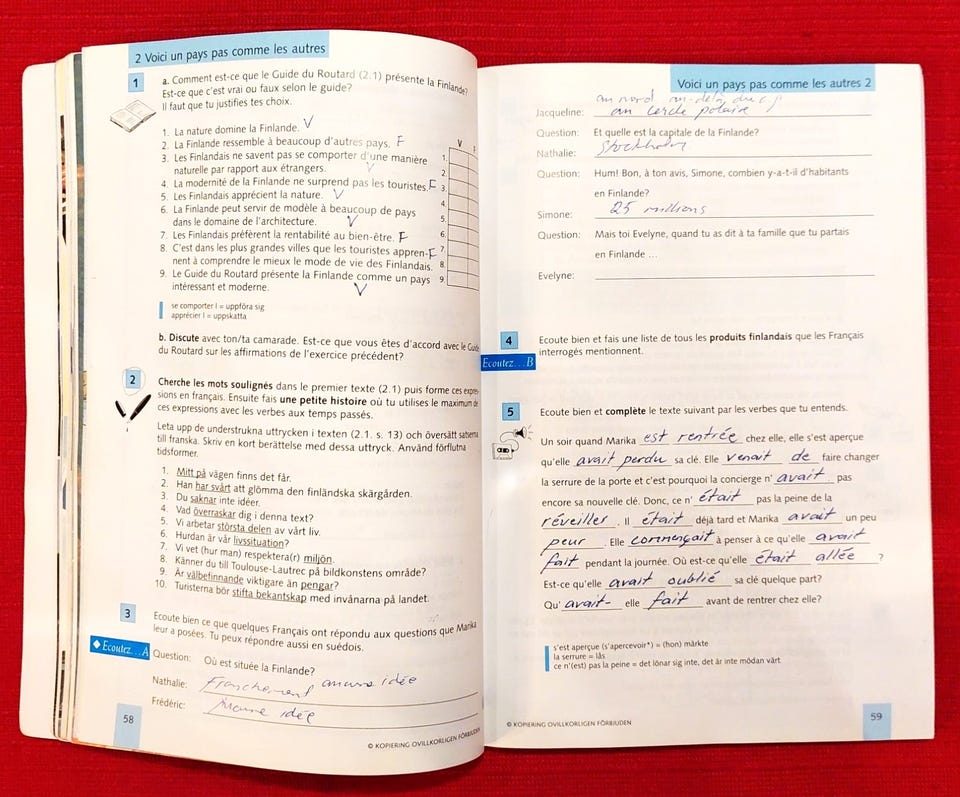 2 Voici un pays pas comme les autres
1
a. Comment est-ce que le Guide du Routard (2.1) présente la Finlande?
Est-ce que c'est vrai ou faux selon le guide?
Il faut que tu justifies tes choix.
V F
1. La nature domine la Finlande. V
2. La Finlande ressemble à beaucoup d'autres pays. F
3. Les Finlandais ne savent pas se comporter d'une manière
naturelle par rapport aux étrangers. V
4. La modernité de la Finlande ne surprend pas les touristes. F
5. Les Finlandais apprécient la nature. V
6. La Finlande peut servir de modèle à beaucoup de pays
dans le domaine de l'architecture. V
7. Les Finlandais préfèrent la rentabilité au bien-être. F
8. C'est dans les plus grandes villes que les touristes appren- F
nent à comprendre le mieux le mode de vie des Finlandais.
9. Le Guide du Routard présente la Finlande comme un pays
intéressant et moderne. V
1.
2.
3.
4.
5.
6.
7.
8.
9.
se comporter I = uppföra sig
apprécier I = uppskatta
b. Discute avec ton/ta camarade. Est-ce que vous êtes d'accord avec le Guide
du Routard sur les affirmations de l'exercice précédent?
2
Cherche les mots soulignés dans le premier texte (2.1) puis forme ces expres-
sions en français. Ensuite fais une petite histoire où tu utilises le maximum de
ces expressions avec les verbes aux temps passés.
Leta upp de understrukna uttrycken i texten (2.1. s. 13) och översätt satserna
till franska. Skriv en kort berättelse med dessa uttryck. Använd förflutna
tidsformer.
1. Mitt på vägen finns det får.
2. Han har svårt att glömma den finländska skärgården.
3. Du saknar inte idéer.
4. Vad överraskar dig i denna text?
5. Vi arbetar största delen av vårt liv.
6. Hurdan är vår livssituation?
7. Vi vet (hur man) respektera(r) miljön.
8. Känner du till Toulouse-Lautrec på bildkonstens område?
9. Är välbefinnande viktigare än pengar?
10. Turisterna bör stifta bekantskap med invånarna på landet.
3
Ecoute bien ce que quelques Français ont répondu aux questions que Marika
leur a posées. Tu peux répondre aussi en suédois.
Ecoutez... A
Question: Où est située la Finlande?
Nathalie: Franchement aucune idée
Frédéric: Aucune idée
58
© KOPIERING OVILLKORLIGEN FÖRBJUDEN
Voici un pays pas comme les autres 2
au nord au-delà du
Jacqueline: au cercle polaire
Question: Et quelle est la capitale de la Finlande?
Nathalie: Stockholm
Question: Hum! Bon, à ton avis, Simone, combien y-a-t-il d'habitants
en Finlande?
Simone: 25 millions
Question: Mais toi Evelyne, quand tu as dit à ta famille que tu partais
en Finlande ...
Evelyne:
4
Ecoutez... B
Ecoute bien et fais une liste de tous les produits finlandais que les Français
interrogés mentionnent.
5
Ecoute bien et complète le texte suivant par les verbes que tu entends.
Un soir quand Marika est rentrée chez elle, elle s'est aperçue
qu'elle avait perdu sa clé. Elle venait de faire changer
la serrure de la porte et c'est pourquoi la concierge n' avait pas
encore sa nouvelle clé. Donc, ce n' était pas la peine de la
réveiller. Il était déjà tard et Marika avait un peu
peur. Elle commençait à penser à ce qu'elle avait
fait pendant la journée. Où est-ce qu'elle était allée ?
Est-ce qu'elle avait oublié sa clé quelque part?
Qu' avait- elle fait avant de rentrer chez elle?
s'est aperçue (s'apercevoir*) = (hon) märkte
la serrure = lås
ce n'(est) pas la peine = det lönar sig inte, det är inte mödan värt
© KOPIERING OVILLKORLIGEN FÖRBJUDEN
59